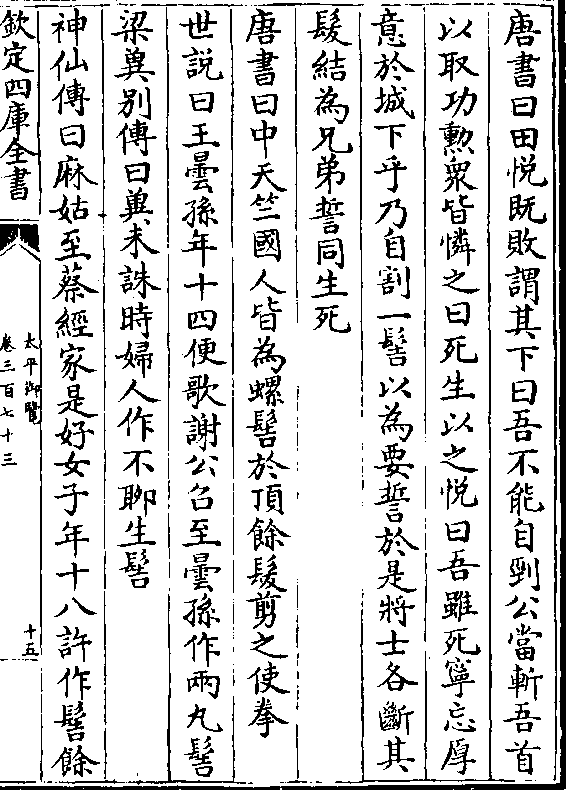 唐書曰田悅既敗謂其下曰吾不能自剄公當斬吾首
以取功勲衆皆憐之曰死生以之悅曰吾雖死寧忘厚
意於城下乎乃自割一髻以為要誓於是將士各斷其
髮結為兄弟誓同生死
唐書曰中天竺國人皆為螺髻於頂餘髮剪之使拳
世説曰王曇孫年十四便歌謝公召至曇孫作兩丸髻
梁冀别傳曰冀未誅時婦人作不聊生髻
神仙傳曰麻姑至蔡經家是好女子年十八許作髻餘
欽定四庫全書
太平御覽
卷三百七十三
十五